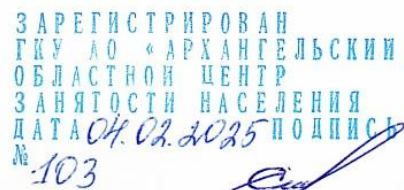 ЗАРЕГИСТРИРОВАН
ГКУ АО «АРХАНГЕЛЬСКИЙ
ОБЛАСТНОЙ ЦЕНТР
ЗАНЯТОСТИ НАСЕЛЕНИЯ
ДАТА 04.02.2025 ПОДПИСЬ
№ 103